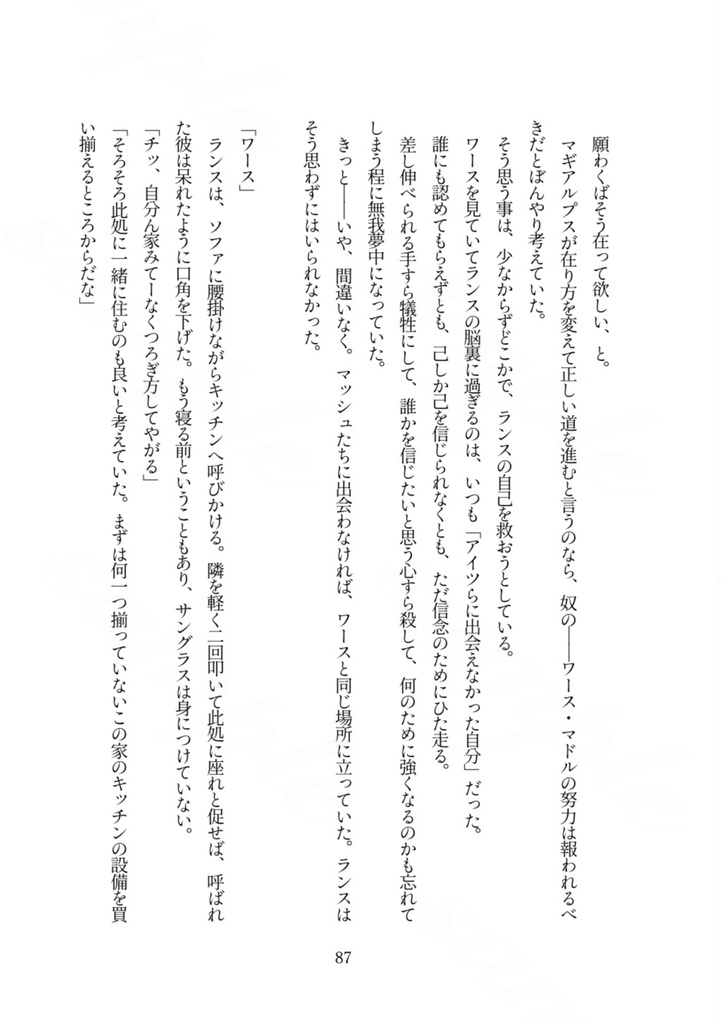 願わくばそう在って欲しい、と。
マギアルプスが在り方を変えて正しい道を進むと言うのなら、奴の――ワース・マドルの努力は報われるべ
きだとぼんやり考えていた。
そう思う事は、少なからずどこかで、ランスの自己を救おうとしている。
ワースを見ていてランスの脳裏に過ぎるのは、いつも「アイツらに出会えなかった自分」だった。
誰にも認めてもらえずとも、己しか己を信じられなくとも、ただ信念のためにひた走る。
差し伸べられる手すら犠牲にして、誰かを信じたいと思う心すら殺して、何のために強くなるのかも忘れて
しまう程に無我夢中になっていた。
きっと――いや、間違いなく。マッシュたちに出会わなければ、ワースと同じ場所に立っていた。ランスは
そう思わずにはいられなかった。
「ワース」
ランスは、ソファに腰掛けながらキッチンへ呼びかける。隣を軽く二回叩いて此処に座れと促せば、呼ばれ
た彼は呆れたように口角を下げた。もう寝る前ということもあり、サングラスは身につけていない。
「チッ、自分ん家みてーなくつろぎ方してやがる」
「そろそろ此処に一緒に住むのも良いと考えていた。まずは何一つ揃っていないこの家のキッチンの設備を買
い揃えるところからだな」
87
sample